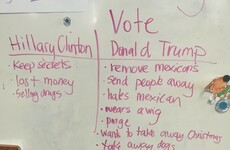 Vote
Hillary Clinton
Donald Trump
• Keep secrets
• lost money
• selling drugs
• remove mexicans
• send people away
• hates mexican
• wears a wig
• purge
• want to take away Christmas
• take away dogs